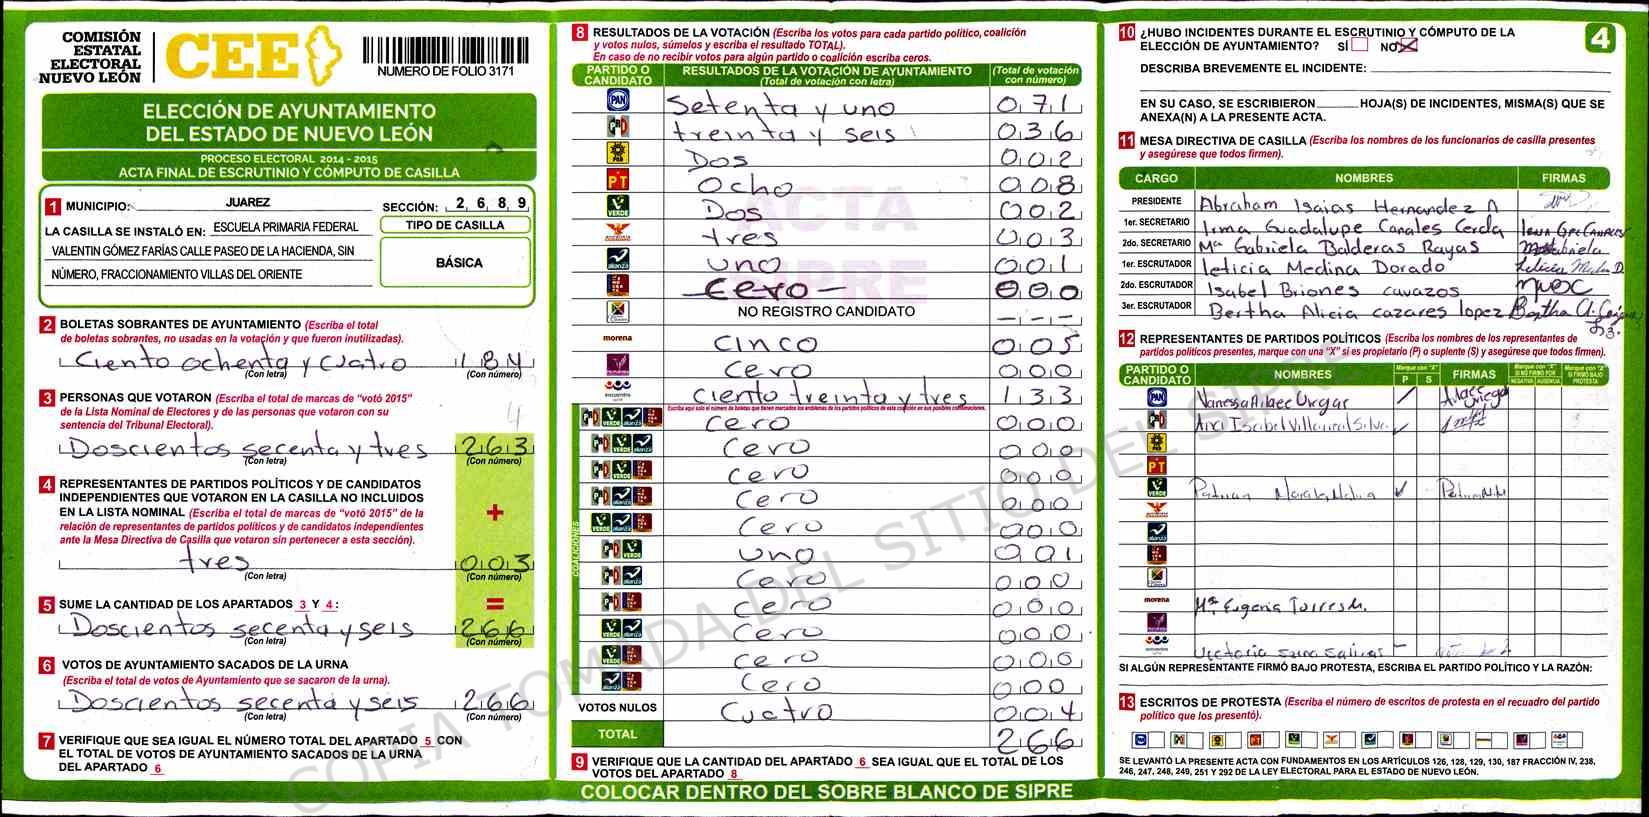 COMISIÓN
ESTATAL
ELECTORAL
NUEVO LEÓN
CEE
NUMERO DE FOLIO 3171
ELECCIÓN DE AYUNTAMIENTO
DEL ESTADO DE NUEVO LEÓN
PROCESO ELECTORAL 2014 - 2015
ACTA FINAL DE ESCRUTINIO Y CÓMPUTO DE CASILLA
1 MUNICIPIO: JUAREZ SECCIÓN: 2 6 8 9
LA CASILLA SE INSTALÓ EN: ESCUELA PRIMARIA FEDERAL
VALENTIN GÓMEZ FARÍAS CALLE PASEO DE LA HACIENDA, SIN
NÚMERO, FRACCIONAMIENTO VILLAS DEL ORIENTE
TIPO DE CASILLA
BÁSICA
2 BOLETAS SOBRANTES DE AYUNTAMIENTO (Escriba el total
de boletas sobrantes, no usadas en la votación y que fueron inutilizadas).
Ciento ochenta y cuatro 184
(Con letra) (Con número)
3 PERSONAS QUE VOTARON (Escriba el total de marcas de "votó 2015"
de la Lista Nominal de Electores y de las personas que votaron con su
sentencia del Tribunal Electoral).
4
Doscientos secenta y tres 263
(Con letra) (Con número)
4 REPRESENTANTES DE PARTIDOS POLÍTICOS Y DE CANDIDATOS
INDEPENDIENTES QUE VOTARON EN LA CASILLA NO INCLUIDOS
EN LA LISTA NOMINAL (Escriba el total de marcas de "votó 2015" de la
relación de representantes de partidos políticos y de candidatos independientes
ante la Mesa Directiva de Casilla que votaron sin pertenecer a esta sección).
+
tres 003
(Con letra) (Con número)
5 SUME LA CANTIDAD DE LOS APARTADOS 3 Y 4: =
Doscientos secenta y seis 266
(Con letra) (Con número)
6 VOTOS DE AYUNTAMIENTO SACADOS DE LA URNA
(Escriba el total de votos de Ayuntamiento que se sacaron de la urna).
Doscientos secenta y seis 266
(Con letra) (Con número)
7 VERIFIQUE QUE SEA IGUAL EL NÚMERO TOTAL DEL APARTADO 5 CON
EL TOTAL DE VOTOS DE AYUNTAMIENTO SACADOS DE LA URNA
DEL APARTADO 6
8 RESULTADOS DE LA VOTACIÓN (Escriba los votos para cada partido político, coalición
y votos nulos, súmelos y escriba el resultado TOTAL).
En caso de no recibir votos para algún partido o coalición escriba ceros.
PARTIDO O CANDIDATO RESULTADOS DE LA VOTACIÓN DE AYUNTAMIENTO (Total de votación con letra) (Total de votación con número)
PAN Setenta y uno 071
PRI treinta y seis 036
PRD Dos 002
PT Ocho 008
VERDE Dos 002
tres 003
alianza uno 001
cero 000
NO REGISTRO CANDIDATO ---
morena cinco 005
cero 000
encuentro ciento treinta y tres 133
Escriba aquí solo el número de boletas que tienen marcados los emblemas de los partidos políticos de esta coalición en sus posibles combinaciones.
COALICIONES
cero 000
cero 000
cero 000
cero 000
cero 000
uno 001
cero 000
cero 000
cero 000
cero 000
cero 000
VOTOS NULOS cuatro 004
TOTAL 266
9 VERIFIQUE QUE LA CANTIDAD DEL APARTADO 6 SEA IGUAL QUE EL TOTAL DE LOS
VOTOS DEL APARTADO 8
COLOCAR DENTRO DEL SOBRE BLANCO DE SIPRE
ACTA
SIPRE
COPIA TOMADA DEL SITIO DEL SIPRE
10 ¿HUBO INCIDENTES DURANTE EL ESCRUTINIO Y CÓMPUTO DE LA
ELECCIÓN DE AYUNTAMIENTO? SÍ NO X
4
DESCRIBA BREVEMENTE EL INCIDENTE:
EN SU CASO, SE ESCRIBIERON HOJA(S) DE INCIDENTES, MISMA(S) QUE SE
ANEXA(N) A LA PRESENTE ACTA.
11 MESA DIRECTIVA DE CASILLA (Escriba los nombres de los funcionarios de casilla presentes
y asegúrese que todos firmen).
CARGO NOMBRES FIRMAS
PRESIDENTE Abraham Isaias Hernandez A
1er. SECRETARIO Irma Guadalupe Canales Cerda Irma Gpe Canales
2do. SECRETARIO Mª Gabriela Balderas Rayas
1er. ESCRUTADOR leticia Medina Dorado
2do. ESCRUTADOR Isabel Briones cavazos
3er. ESCRUTADOR Bertha Alicia cazares lopez
12 REPRESENTANTES DE PARTIDOS POLÍTICOS (Escriba los nombres de los representantes de
partidos políticos presentes, marque con una "X" si es propietario (P) o suplente (S) y asegúrese que todos firmen).
PARTIDO O CANDIDATO NOMBRES Marque con "X" P S FIRMAS Marque con "X" SI NO FIRMÓ POR NEGATIVA AUSENCIA Marque con "X" SI FIRMÓ BAJO PROTESTA
PAN Vanessa
PRI Ana Isabel Villarreal Silva
PRD
PT
VERDE
alianza
morena Mª Eugenia Torres M.
encuentro
SI ALGÚN REPRESENTANTE FIRMÓ BAJO PROTESTA, ESCRIBA EL PARTIDO POLÍTICO Y LA RAZÓN:
13 ESCRITOS DE PROTESTA (Escriba el número de escritos de protesta en el recuadro del partido
político que los presentó).
SE LEVANTÓ LA PRESENTE ACTA CON FUNDAMENTOS EN LOS ARTÍCULOS 126, 128, 129, 130, 187 FRACCIÓN IV, 238,
246, 247, 248, 249, 251 Y 292 DE LA LEY ELECTORAL PARA EL ESTADO DE NUEVO LEÓN.